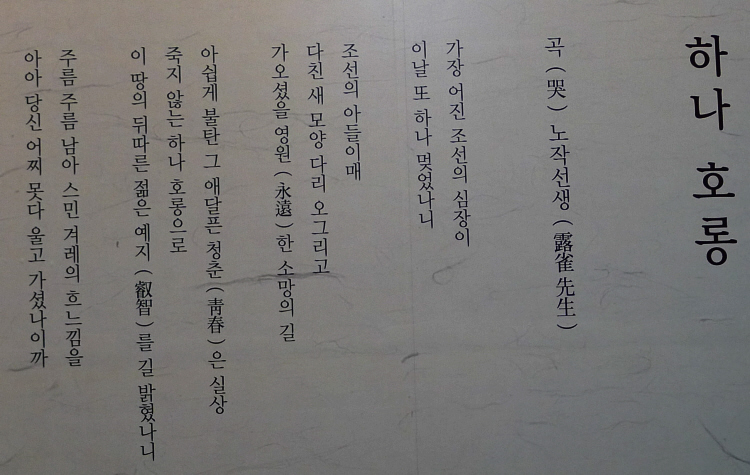 하나 호롱
곡(哭) 노작선생(露雀先生)
가장 어진 조선의 심장이
이날 또 하나 멎었나니
조선의 아들이매
다친 새 모양 다리 오그리고
가오셨을 영원(永遠)한 소망의 길
아쉽게 불탄 그 애달픈 청춘(靑春)은 실상
죽지 않는 하나 호롱으로
이 땅의 뒤따른 젊은 예지(叡智)를 길 밝혔나니
주름 주름 남아 스민 겨레의 흐느낌을
아아 당신 어찌 못다 울고 가셨나이까